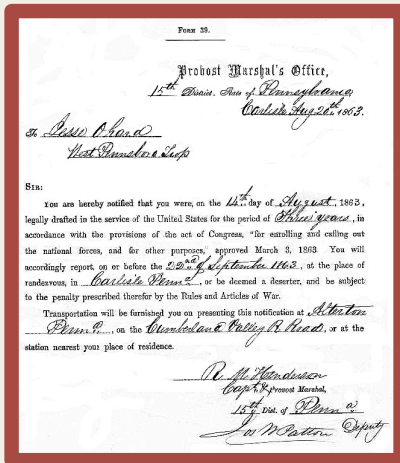 FORM 39.
Provost Marshal's Office,
15th District, State of Pennsylvania
Carlisle Aug 20th, 1863.
To Jesse O hard
West Pennsboro Twp
SIR:
You are hereby notified that you were, on the 14th day of August, 1863,
legally drafted in the service of the United States for the period of Three years, in
accordance with the provisions of the act of Congress, "for enrolling and calling out
the national forces, and for other purposes," approved March 3, 1863. You will
accordingly report, on or before the 22nd of September 1863, at the place of
rendezvous, in Carlisle Penna, or be deemed a deserter, and be subject
to the penalty prescribed therefor by the Rules and Articles of War.
Transportation will be furnished you on presenting this notification at
Penna, on the Cumberland Valley R. Road, or at the
station nearest your place of residence.
R. M. Henderson
Capt. & Provost Marshal,
15th Dist. of Penna
Jos W Patton Deputy